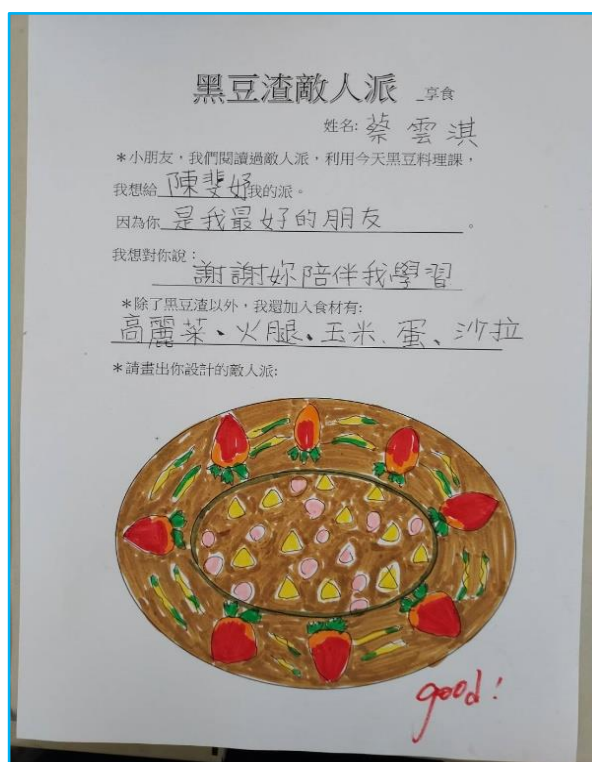 黑豆渣敵人派 _享食
姓名: 蔡雲淇
*小朋友，我們閱讀過敵人派，利用今天黑豆料理課，
我想給陳斐妤我的派。
因為你是我最好的朋友。
我想對你說：
謝謝妳陪伴我學習
*除了黑豆渣以外，我還加入食材有:
高麗菜、火腿、玉米、蛋、沙拉
*請畫出你設計的敵人派:
good!